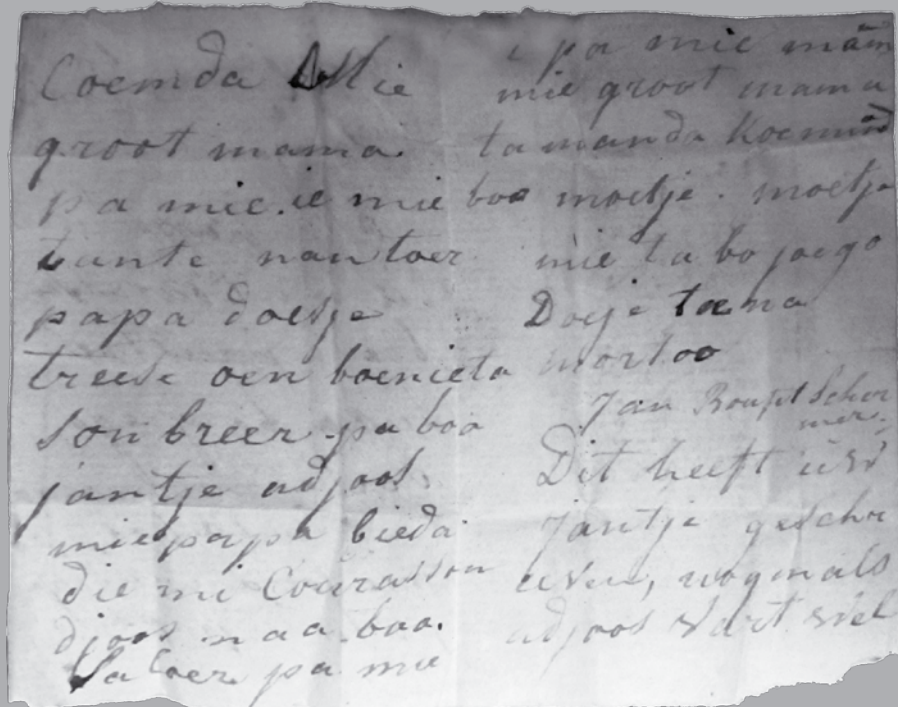 Coemda Mie
groot mama
pa mie. ie mie boo
tante nan toer
papa doetje
treese oen boenieta
son breer pa boo
jantje adjoos
mie papa bieda
die mi Courasson
djoos naa boo.
Saloer pa mie
i pa mie mam
mie groot mama
ta manda Koemind
moetje. moetje
mie ta bo joego
Doeje toena
mortoo
Jan Boufet Schir
mer.
Dit heeft uw
Jantje geschr
even, nogmals
adjoos vart wel